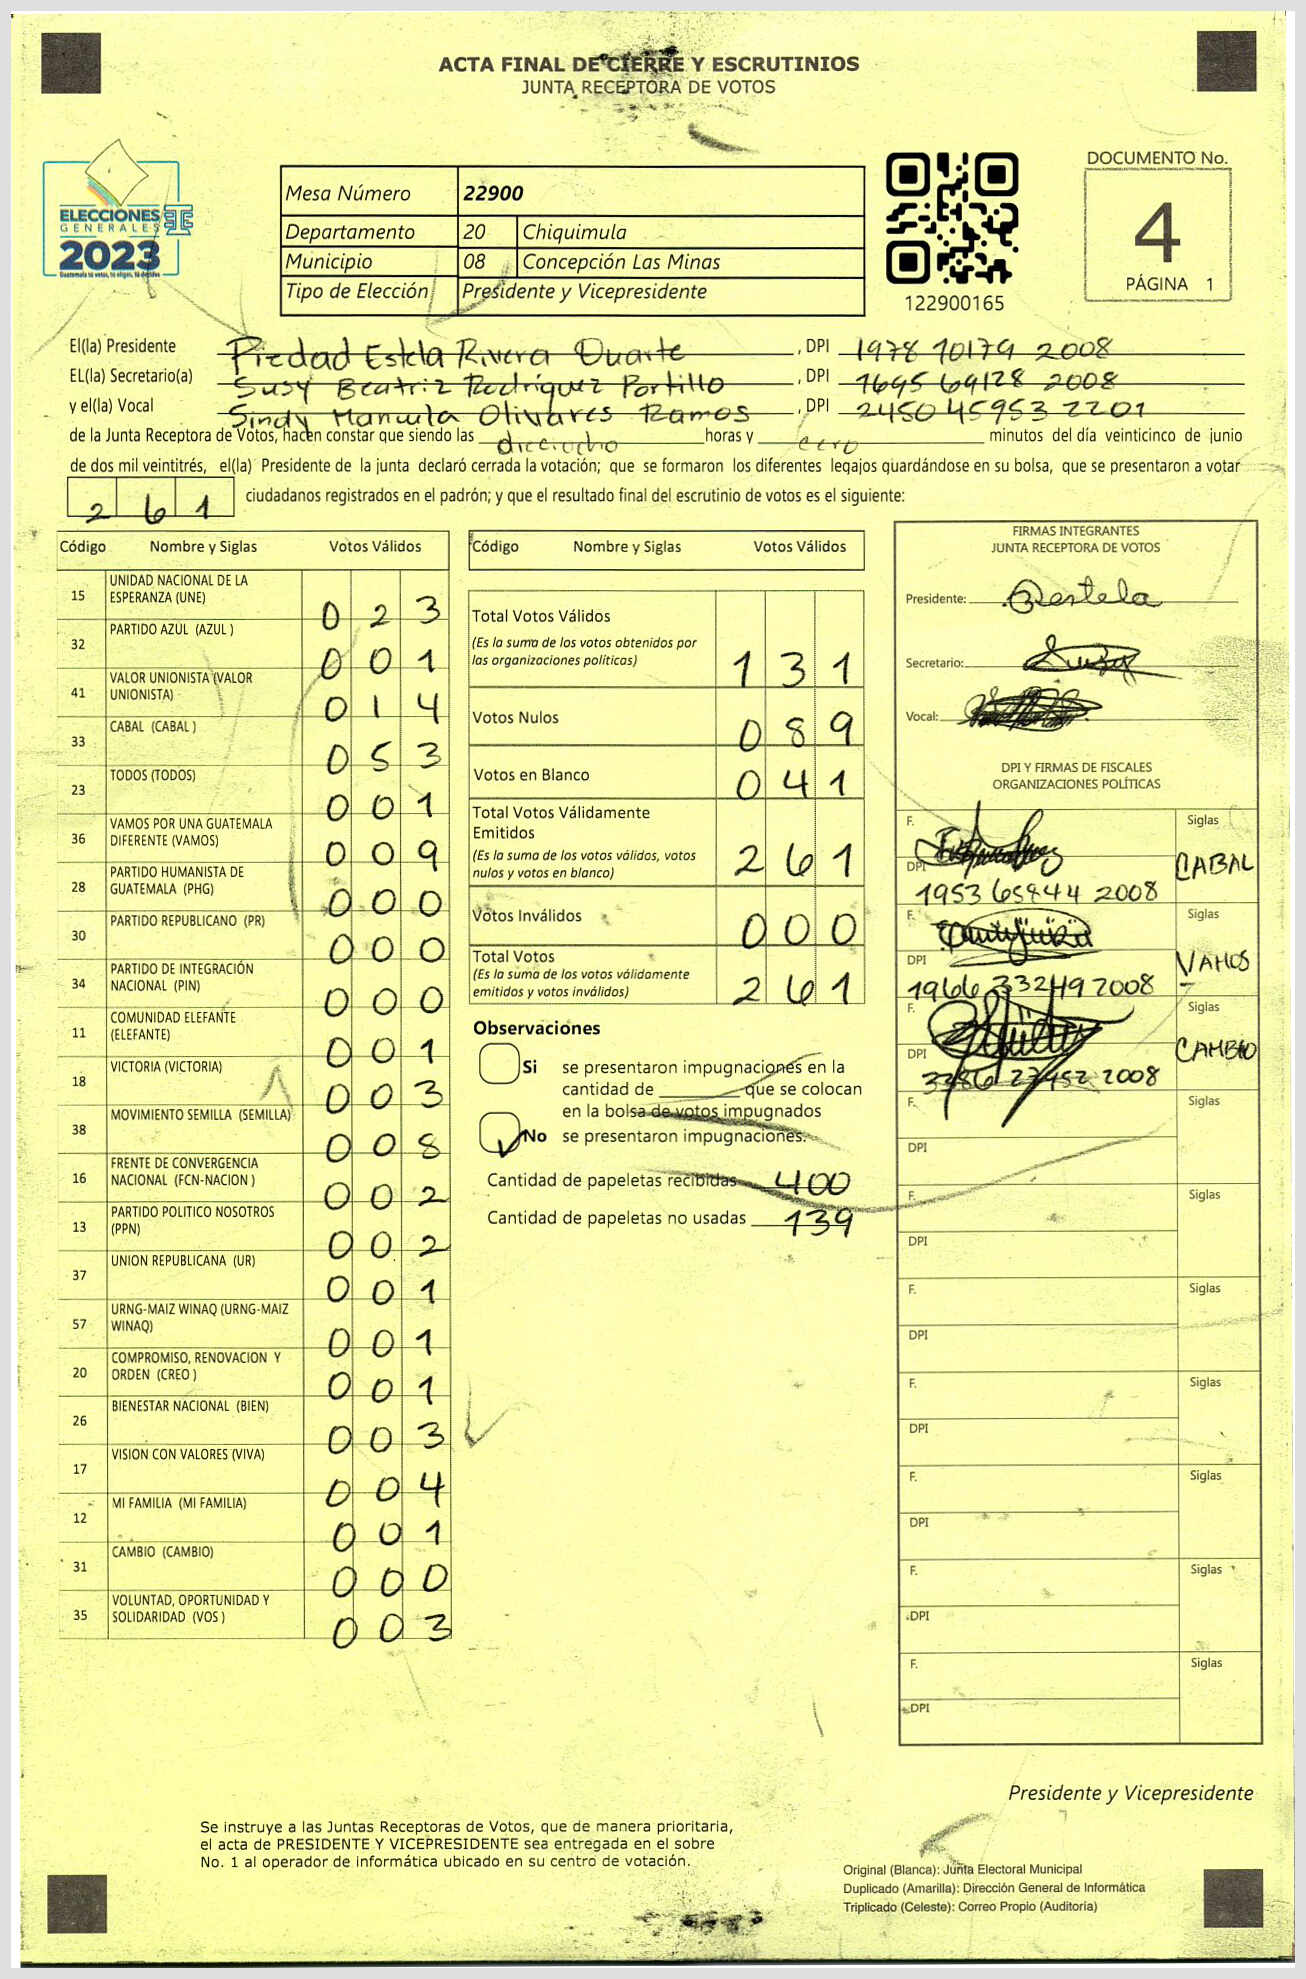 ACTA FINAL DE CIERRE Y ESCRUTINIOS
JUNTA RECEPTORA DE VOTOS
ELECCIONES
GENERALES
2023
Guatemala tú votas, tú eliges, tú decides
Mesa Número 22900
Departamento 20 Chiquimula
Municipio 08 Concepción Las Minas
Tipo de Elección Presidente y Vicepresidente
122900165
DOCUMENTO No.
4
PÁGINA 1
El(la) Presidente Piedad Estela Rivera Duarte , DPI 1978 10179 2008
EL(la) Secretario(a) Susy Beatriz Rodríguez Portillo , DPI 1695 69128 2008
y el(la) Vocal Sindy Manuela Olivares Ramos , DPI 2450 45953 2201
de la Junta Receptora de Votos, hacen constar que siendo las dieciocho horas y cero minutos del día veinticinco de junio
de dos mil veintitrés, el(la) Presidente de la junta declaró cerrada la votación; que se formaron los diferentes legajos guardándose en su bolsa, que se presentaron a votar
261 ciudadanos registrados en el padrón; y que el resultado final del escrutinio de votos es el siguiente:
Código Nombre y Siglas Votos Válidos
15 UNIDAD NACIONAL DE LA
ESPERANZA (UNE) 023
32 PARTIDO AZUL (AZUL ) 001
41 VALOR UNIONISTA (VALOR
UNIONISTA) 014
33 CABAL (CABAL ) 053
23 TODOS (TODOS) 001
36 VAMOS POR UNA GUATEMALA
DIFERENTE (VAMOS) 009
28 PARTIDO HUMANISTA DE
GUATEMALA (PHG) 000
30 PARTIDO REPUBLICANO (PR) 000
34 PARTIDO DE INTEGRACIÓN
NACIONAL (PIN) 000
11 COMUNIDAD ELEFANTE
(ELEFANTE) 001
18 VICTORIA (VICTORIA) 003
38 MOVIMIENTO SEMILLA (SEMILLA) 008
16 FRENTE DE CONVERGENCIA
NACIONAL (FCN-NACION ) 002
13 PARTIDO POLITICO NOSOTROS
(PPN) 002
37 UNION REPUBLICANA (UR) 001
57 URNG-MAIZ WINAQ (URNG-MAIZ
WINAQ) 001
20 COMPROMISO, RENOVACION Y
ORDEN (CREO ) 001
26 BIENESTAR NACIONAL (BIEN) 003
17 VISION CON VALORES (VIVA) 004
12 MI FAMILIA (MI FAMILIA) 001
31 CAMBIO (CAMBIO) 000
35 VOLUNTAD, OPORTUNIDAD Y
SOLIDARIDAD (VOS ) 003
Código Nombre y Siglas Votos Válidos
Total Votos Válidos
(Es la suma de los votos obtenidos por
las organizaciones políticas) 131
Votos Nulos 089
Votos en Blanco 041
Total Votos Válidamente
Emitidos
(Es la suma de los votos válidos, votos
nulos y votos en blanco) 261
Votos Inválidos 000
Total Votos
(Es la suma de los votos válidamente
emitidos y votos inválidos) 261
Observaciones
Si se presentaron impugnaciones en la
cantidad de ________ que se colocan
en la bolsa de votos impugnados
No se presentaron impugnaciones.
Cantidad de papeletas recibidas 400
Cantidad de papeletas no usadas 139
FIRMAS INTEGRANTES
JUNTA RECEPTORA DE VOTOS
Presidente:
Secretario:
Vocal:
DPI Y FIRMAS DE FISCALES
ORGANIZACIONES POLÍTICAS
F. Siglas
CABAL
DPI
1953 65944 2008
F. Siglas
VAMOS
DPI
1966 33249 2008
F. Siglas
CAMBIO
DPI
3386 27452 2008
F. Siglas
DPI
F. Siglas
DPI
F. Siglas
DPI
F. Siglas
DPI
F. Siglas
DPI
F. Siglas
DPI
F. Siglas
DPI
Presidente y Vicepresidente
Se instruye a las Juntas Receptoras de Votos, que de manera prioritaria,
el acta de PRESIDENTE Y VICEPRESIDENTE sea entregada en el sobre
No. 1 al operador de informática ubicado en su centro de votación.
Original (Blanca): Junta Electoral Municipal
Duplicado (Amarilla): Dirección General de Informática
Triplicado (Celeste): Correo Propio (Auditoría)